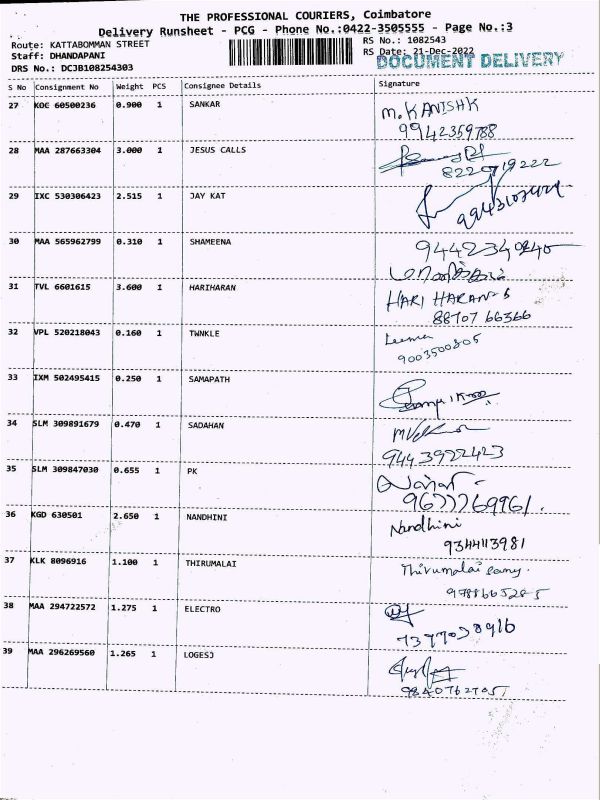 THE PROFESSIONAL COURIERS, Coimbatore
Delivery Runsheet - PCG - Phone No.:0422-3505555 - Page No.:3
Route: KATTABOMMAN STREET RS No.: 1082543
Staff: DHANDAPANI RS Date: 21-Dec-2022
DOCUMENT DELIVERY
DRS No.: DCJB108254303
S No Consignment No Weight PCS Consignee Details Signature
27 KOE 60500236 0.900 1 SANKAR M. KANISHK
9942359788
28 MAA 287663304 3.000 1 JESUS CALLS
8220719222
29 IXC 530306423 2.515 1 JAY KAT
30 MAA 565962799 0.310 1 SHAMEENA
31 TVL 6601615 3.600 1 HARIHARAN HARI HARAN
88707 66366
32 VPL 520218043 0.160 1 TWNKLE
9003500805
33 IXM 502495415 0.250 1 SAMAPATH
34 SLM 309891679 0.470 1 SADAHAN
9443922423
35 SLM 309847030 0.655 1 PK
9677769961.
36 KGD 630501 2.650 1 NANDHINI Nandhini
9344113981
37 KLK 8096916 1.100 1 THIRUMALAI Thirumalai samy.
38 MAA 294722572 1.275 1 ELECTRO
39 MAA 296269560 1.265 1 LOGESJ